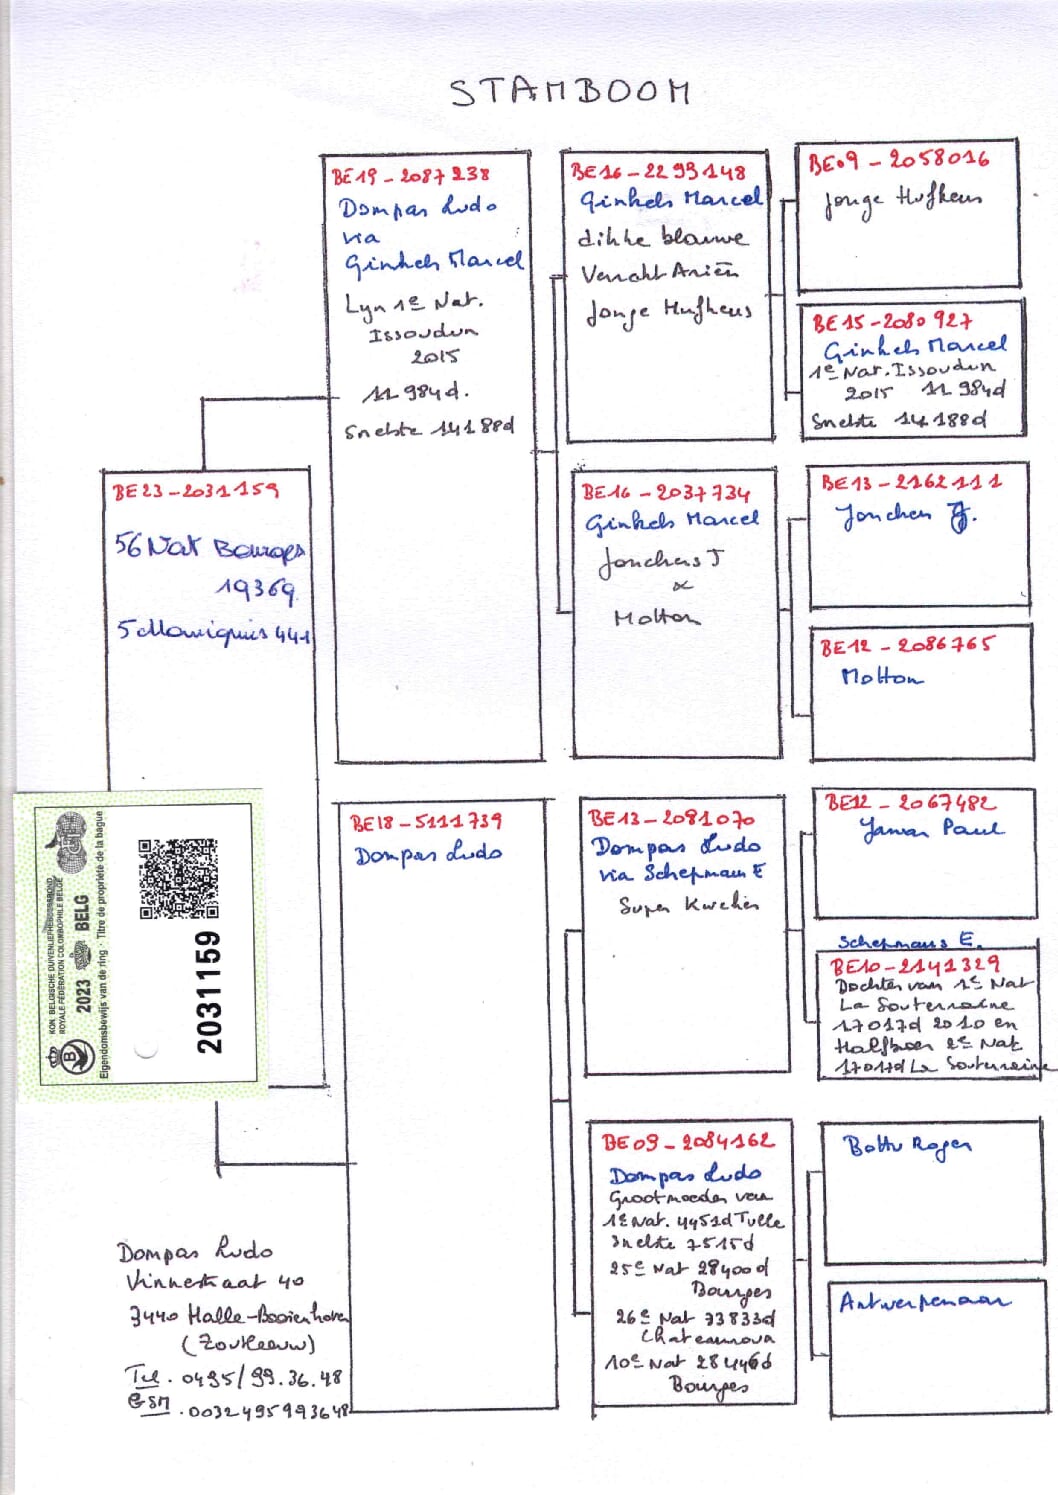 STAMBOOM
BE19-2087238
Dompas Ludo
via
Ginkels Marcel
Lyn 1e Nat.
Issoudun
2015
11 984d.
Snelste 14188d
BE16-2293148
Ginkels Marcel
dikke blauwe
Jonge Hufkens
BE09-2058016
Jonge Hufkens
BE15-2080927
Ginkels Marcel
1e Nat. Issoudun
2015 11 984d
Snelste 14188d
BE23-2031159
56 Nat Bourges
19369
441
BE16-2037734
Ginkels Marcel
Jonckers J
x
Motton
BE13-2162111
J.
BE12-2086765
Motton
BE18-5111739
Dompas Ludo
BE13-2081070
Dompas Ludo
via Schepmans E
Super
BE12-2067482
Paul
Schepmans E.
BE10-2141329
Dochter van 1e Nat
La Souterraine
17017d 2010 en
2e Nat
17017d La Souterraine
BE09-2084162
Dompas Ludo
Grootmoeder van
1e Nat. 4451d Tulle
Snelste 7515d
25e Nat 28400d
Bourges
26e Nat 33833d
10e Nat 28446d
Bourges
Roger
Antwerpenaar
KON. BELGISCHE DUIVENLIEFHEBBERSBOND
ROYALE FÉDÉRATION COLOMBOPHILE BELGE
2023 BELG
Eigendomsbewijs van de ring - Titre de propriété de la bague
2031159
Dompas Ludo
Vinnestraat 40
3440 Halle-Booienhoven
(Zoutleeuw)
Tel. 0495/99.36.48
GSM. 0032495993648